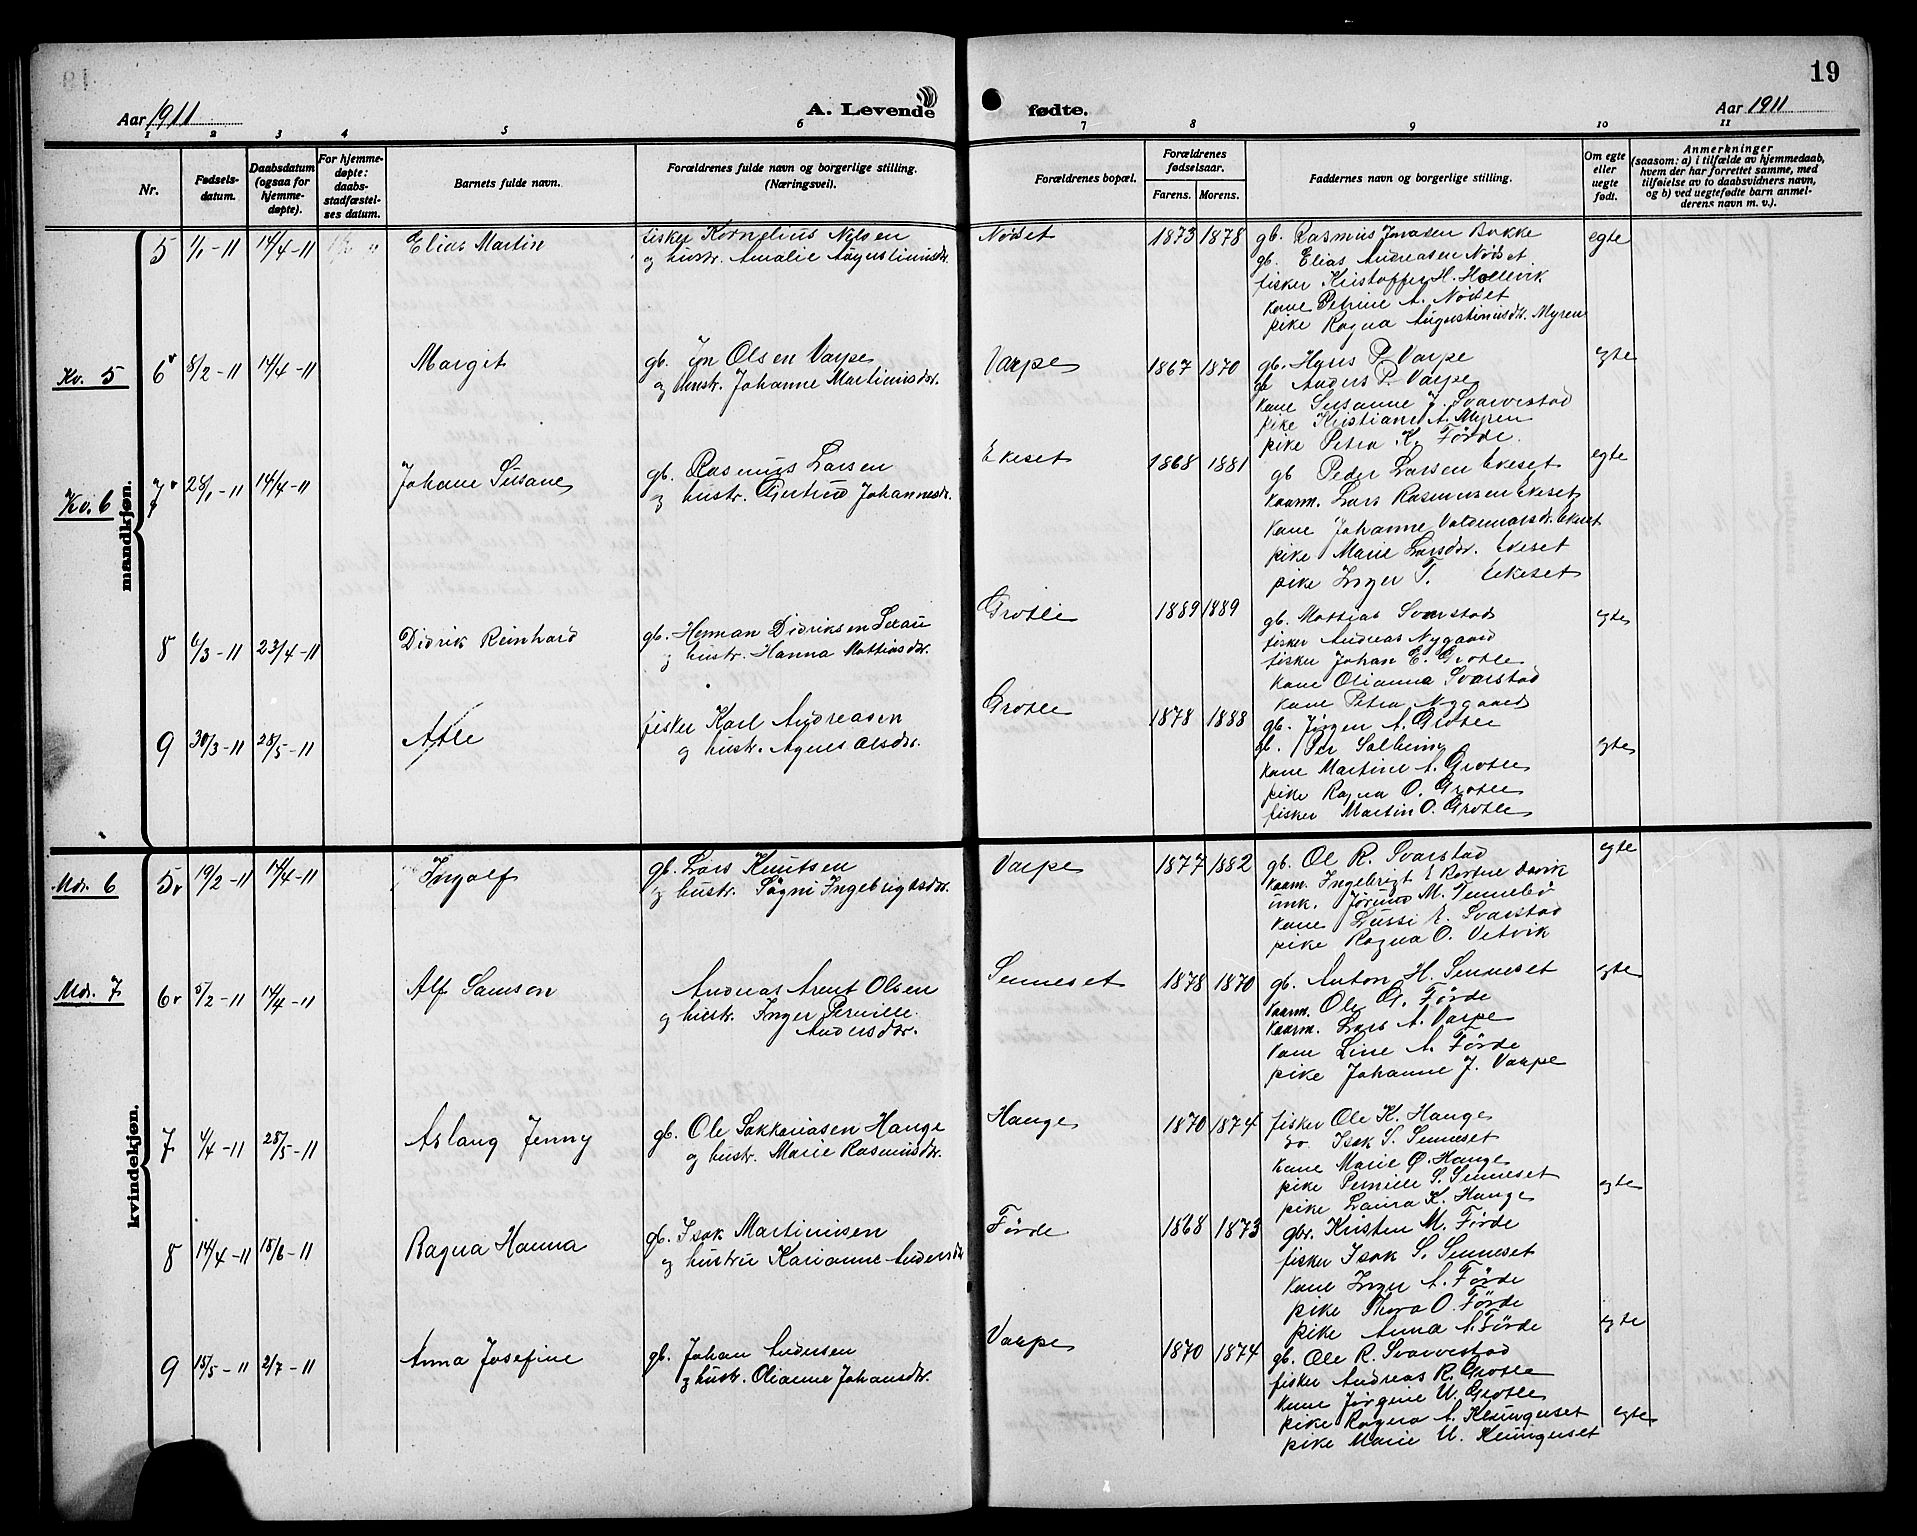 19
Aar 1911
A. Levende fødte.
Aar 1911
1 2 3 4 5 6 7 8 9 10 11
Nr.
Fødsels-datum.
Daabsdatum (ogsaa for hjemme-døpte).
For hjemme-døpte: daabs-stadfæstel-ses datum.
Barnets fulde navn.
Forældrenes fulde navn og borgerlige stilling. (Næringsvei).
Forældrenes bopæl.
Forældrenes fødselsaar.
Farens. Morens.
Faddernes navn og borgerlige stilling.
Om egte eller uegte født.
Anmerkninger (saasom: a) i tilfælde av hjemmedaab, hvem der har forrettet samme, med tilføielse av to daabsvidners navn, og b) ved uegtefødte barn anmel-derens navn m. v.).
mandkjøn.
5 1/1-11 14/4-11 Elias Martin fisker Kornelius Nilsen Nødset 1873 1878 gb. Rasmus Jonasen Bakke egte
og hustr. Amalie Augustinusdr. gb. Elias Andreasen Nødset
fisker Kristoffer H. Hollevik
kone Petrine A. Nødset
pike Ragna Augustinusdr. Myren
Kv. 5 6 8/2-11 14/4-11 Margit gb. Jon Olsen Varpe Varpe 1867 1870 gb. Hans P. Varpe egte
og hustr. Johanne Martinusdr. gb. Anders P. Varpe
kone Susanne J. Svarvestad
pike Kristiane A. Myren
pike Petra K. Førde.
Kv. 6 7 28/1-11 14/4-11 Johane Susane gb. Rasmus Larsen Ekeset 1868 1881 gb Peder Larsen Ekeset egte
og hustr. Gjertrud Johannesdr. kaarm. Lars Rasmussen Ekeset
kone Johanne Valdemarsdr. Ekeset
pike Marie Larsdr. Ekeset
pike Inger T. Ekeset
8 6/3-11 23/4-11 Didrik Reinhard gb. Herman Didriksen Grotle 1889 1889 gb. Mattias Svarstad egte
og hustr. Hanna Mattiasdr. fisker Andreas Nygaard
fisker Johan E. Grotle
kone Olianna Svarstad
kone Petra Nygaard
9 30/3-11 28/5-11 Atle fisker Karl Andreasen Grotle 1878 1888 gb. Jørgen A. Grotle
og hustr. Agnes Olsdr. gb. Per Solheim egte
kone Martine A. Grotle
pike Ragna O. Grotle
fisker Martin O. Grotle
kvindekjøn.
Mdr. 6 5 19/2-11 14/4-11 Ingolf gb. Lars Knutsen Varpe 1877 1882 gb. Ole R. Svarstad egte
og hustr. Søgni Ingebrigtsdr. kaarm. Ingebrigt E
unk. M. Tennebø
kone Lussi E. Svarstad
pike Ragna O. Vetvik
Mdr. 7 6 5/2-11 14/4-11 Alf Samson Andreas Arent Olsen Senneset 1878 1870 gb. Anton H. Senneset egte
og hustr. Inger Pernille Andersdr. kaarm. Ole G. Førde
kaarm. Lars A. Varpe
kone Line A. Førde
pike Johanne J. Varpe
7 4/4-11 28/5-11 Aslaug Jenny gb. Ole Sakkariasen Hauge Hauge 1870 1874 fisker Ole K. Hauge
og hustr. Marie Rasmusdr. do. Isak S. Senneset
kone Marie O. Hauge
pike Pernille S. Senneset egte
pike Laura K. Hauge
8 14/4-11 15/6-11 Ragna Hanna gb. Isak Martinusen Førde 1868 1873 gbr. Kristen M. Førde
og hustru Karianne Andersdr fisker Isak S. Senneset
kone Inger A. Førde
pike Thora O. Førde
pike Anna A. Førde egte
9 15/5-11 2/7-11 Anna Josefine gb. Johan Andersen Varpe 1870 1874 gb. Ole R. Svarvestad
og hustr. Olianne Johansdr. fisker Andreas R. Grotle
kone Jørgine U. Grotle
pike Ragna A. Klungreset egte
pike Marie U. Klungreset